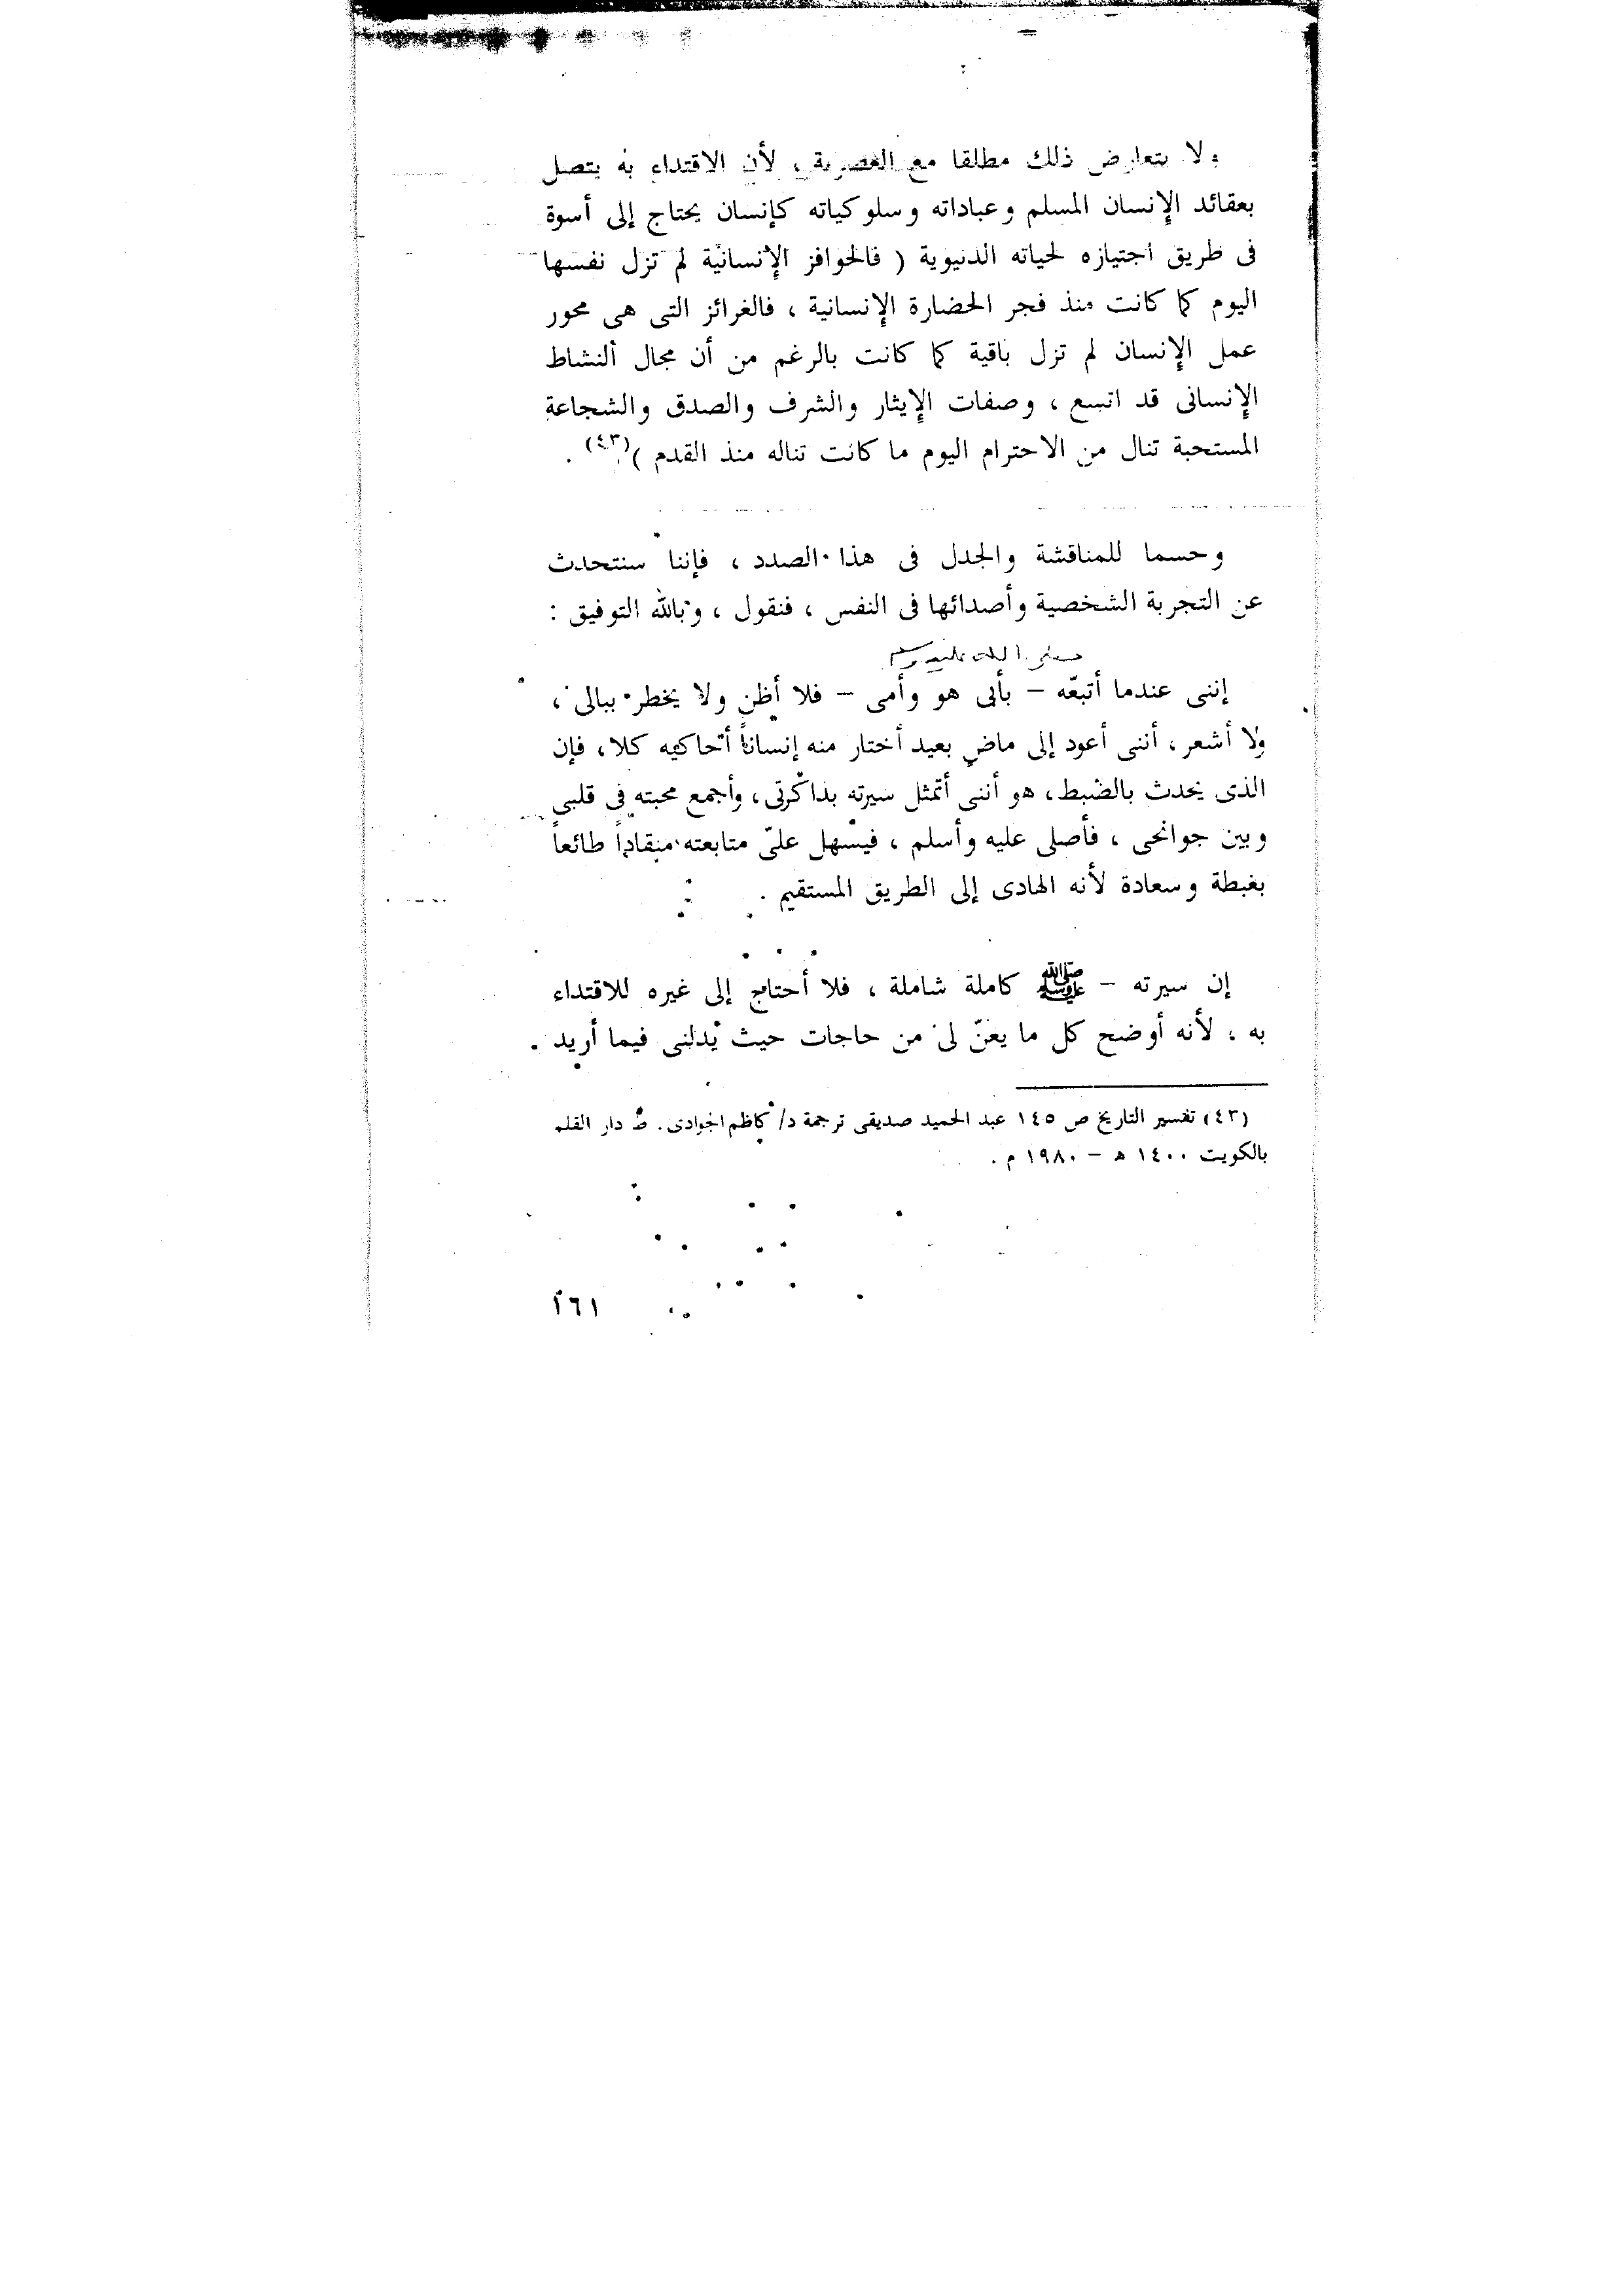 ولا يتعارض ذلك مطلقا مع العصرية ، لأن الاقتداء به يتصل
بعقائد الإنسان المسلم وعباداته وسلوكياته كإنسان يحتاج إلى أسوة
فى طريق اجتيازه لحياته الدنيوية ( فالحوافز الإنسانية لم تزل نفسها
اليوم كما كانت منذ فجر الحضارة الإنسانية ، فالغرائز التى هى محور
عمل الإنسان لم تزل باقية كما كانت بالرغم من أن مجال النشاط
الإنسانى قد اتسع ، وصفات الإيثار والشرف والصدق والشجاعة
المستحبة تنال من الاحترام اليوم ما كانت تناله منذ القدم )(٤٣) .
وحسما للمناقشة والجدل فى هذا الصدد ، فإننا سنتحدث
عن التجربة الشخصية وأصدائها فى النفس ، فنقول ، وبالله التوفيق :
صلى الله عليه وسلم
إننى عندما أتبعّه – بأبى هو وأمى – فلا أظن ولا يخطر ببالى ،
ولا أشعر ، أننى أعود إلى ماضٍ بعيد أختار منه إنساناً أحاكيه كلا ، فإن
الذى يحدث بالضبط ، هو أننى أتمثل سيرته بذاكرتى ، وأجمع محبته فى قلبى
وبين جوانحى ، فأصلى عليه وأسلم ، فيسهل علىّ متابعته منقاداً طائعاً
بغبطة وسعادة لأنه الهادى إلى الطريق المستقيم .
إن سيرته – ﷺ كاملة شاملة ، فلا أحتاج إلى غيره للاقتداء
به ، لأنه أوضح كل ما يعنّ لى من حاجات حيث يدلنى فيما أريد .
(٤٣) تفسير التاريخ ص ١٤٥ عبد الحميد صديقى ترجمة د/ كاظم الجوادى . ط دار القلم
بالكويت ١٤٠٠ هـ – ١٩٨٠ م .
١٦١